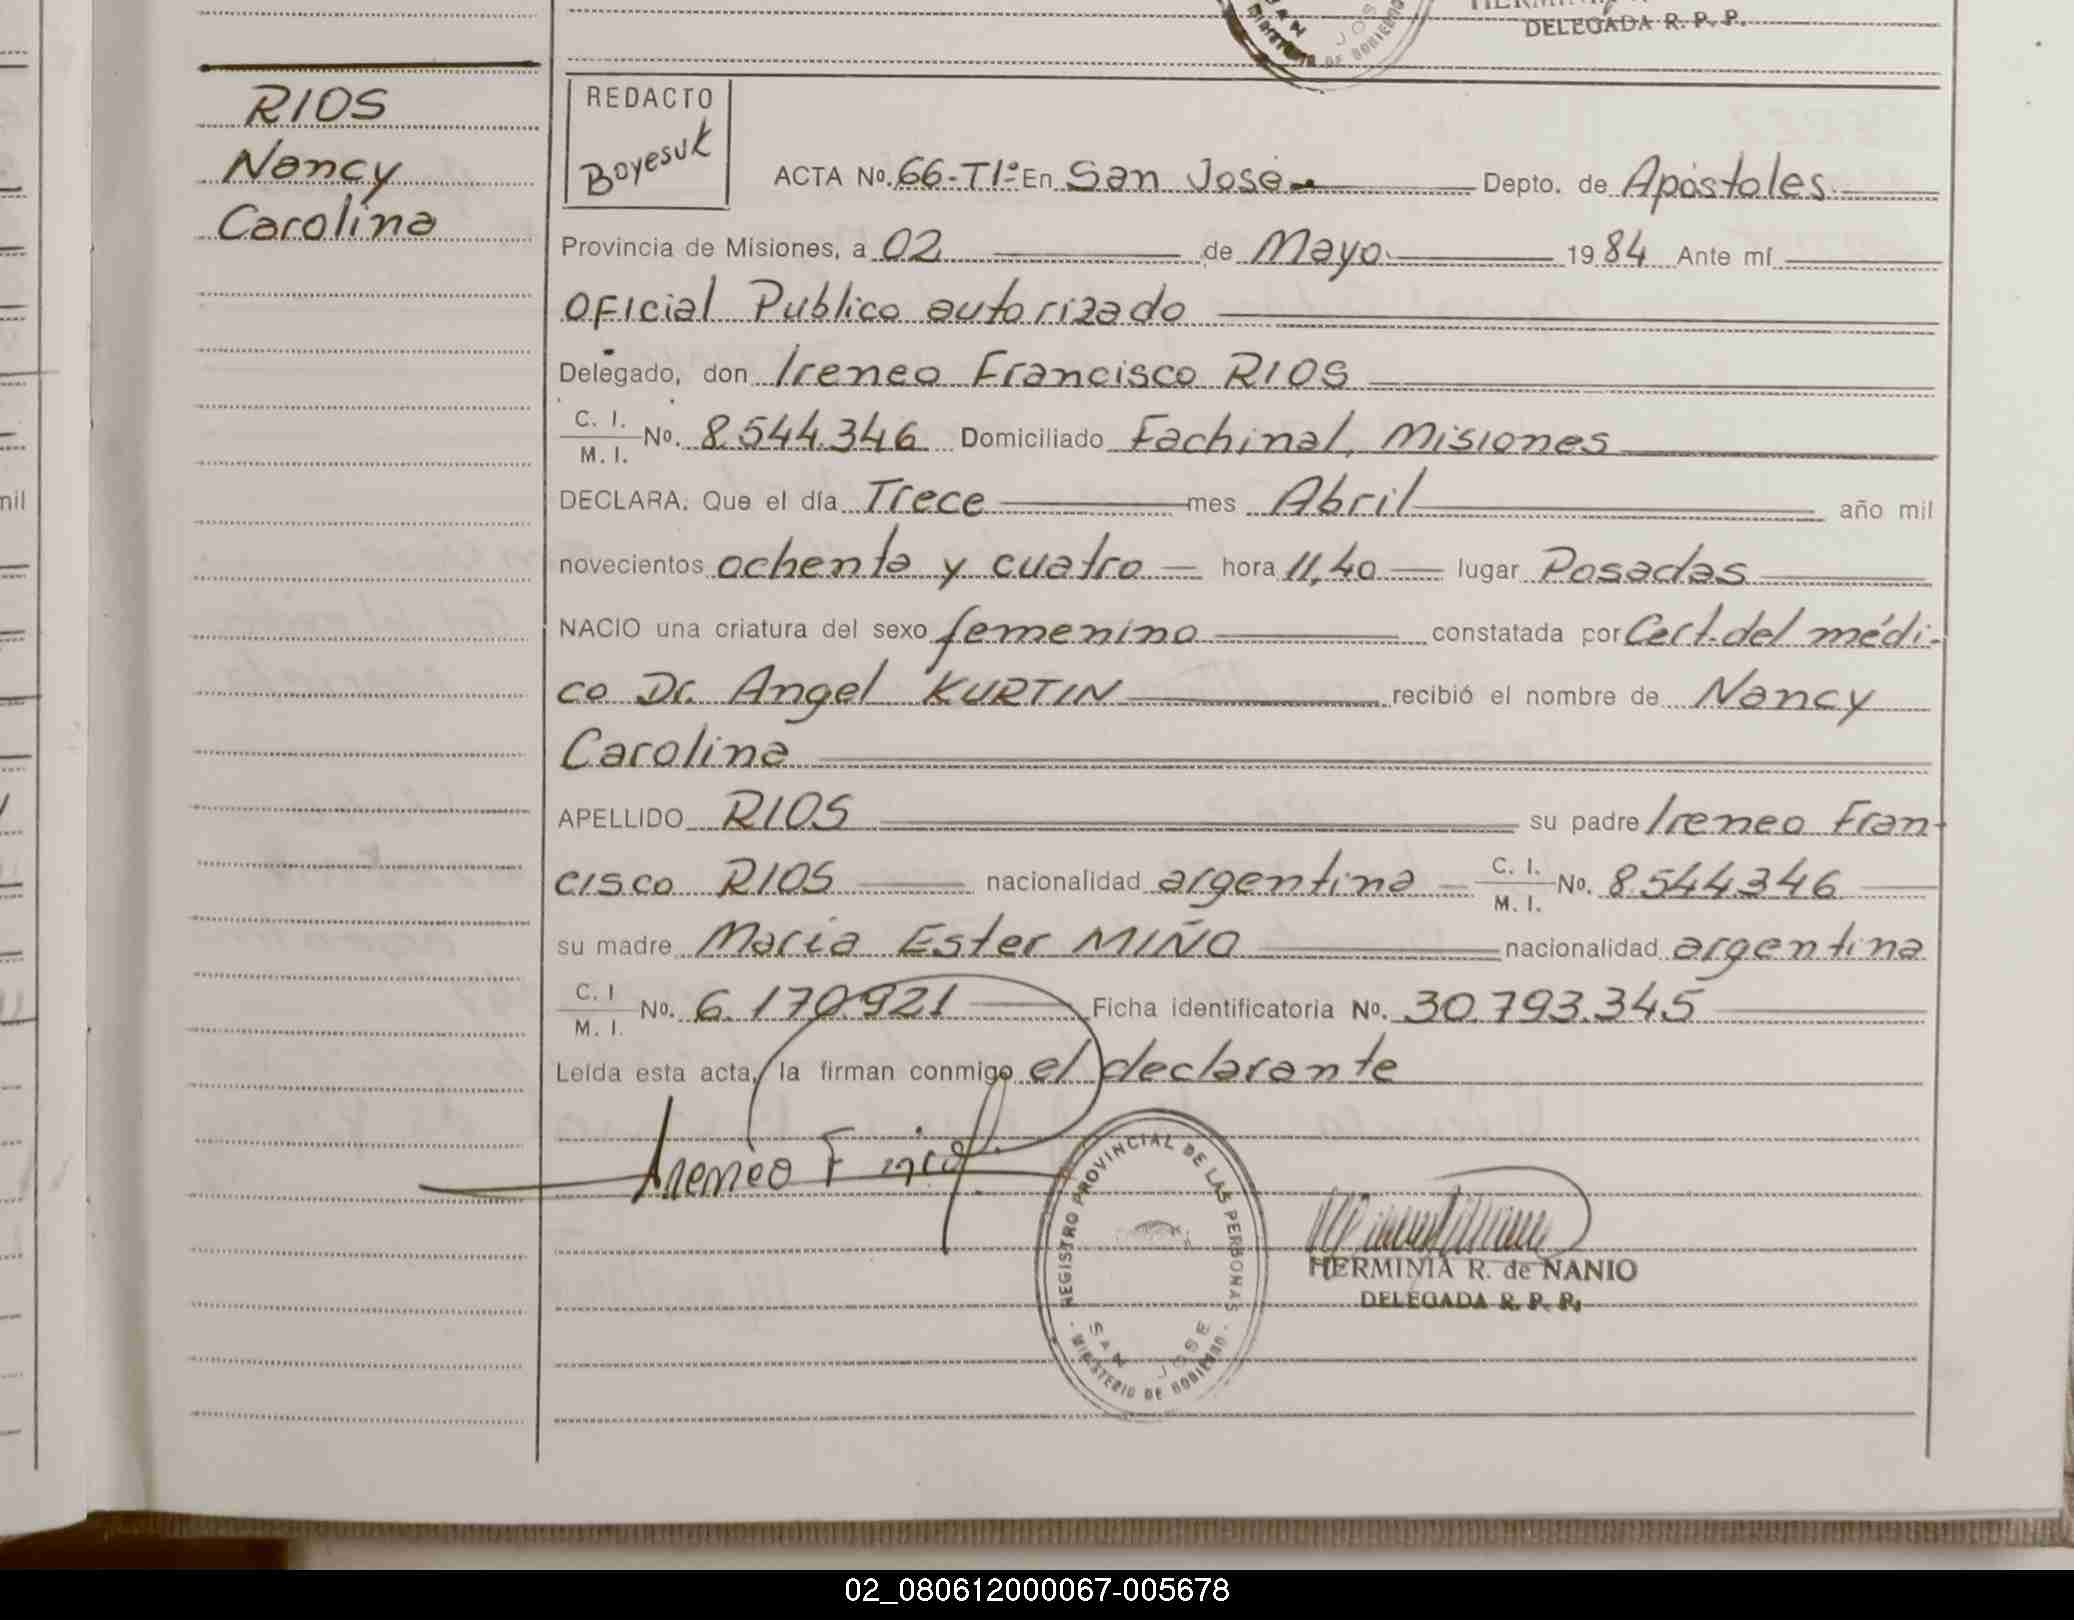 DELEGADA R. P. P.
RIOS
Nancy
Carolina
REDACTO
Boyesuk
ACTA No. 66-T1º En San José Depto. de Apóstoles
Provincia de Misiones, a 02 de Mayo 1984 Ante mí
Oficial Publico autorizado
Delegado, don Ireneo Francisco RIOS
C. I.
M. I. No. 8.544.346 Domiciliado Fachinal, Misiones
DECLARA: Que el día Trece mes Abril año mil
novecientos ochenta y cuatro hora 11,40 lugar Posadas
NACIO una criatura del sexo femenino constatada por Cert. del médi-
co Dr. Angel KURTIN recibió el nombre de Nancy
Carolina
APELLIDO RIOS su padre Ireneo Fran-
cisco RIOS nacionalidad argentina C. I.
M. I. No. 8.544.346
su madre Maria Ester MIÑO nacionalidad argentina
C. I
M. I. No. 6.170.921 Ficha identificatoria No. 30.793.345
Leída esta acta, la firman conmigo el declarante
Ireneo F
REGISTRO PROVINCIAL DE LAS PERSONAS
SAN JOSE
MINISTERIO DE GOBIERNO
HERMINIA R. de NANIO
DELEGADA R. P. P.
02_080612000067-005678